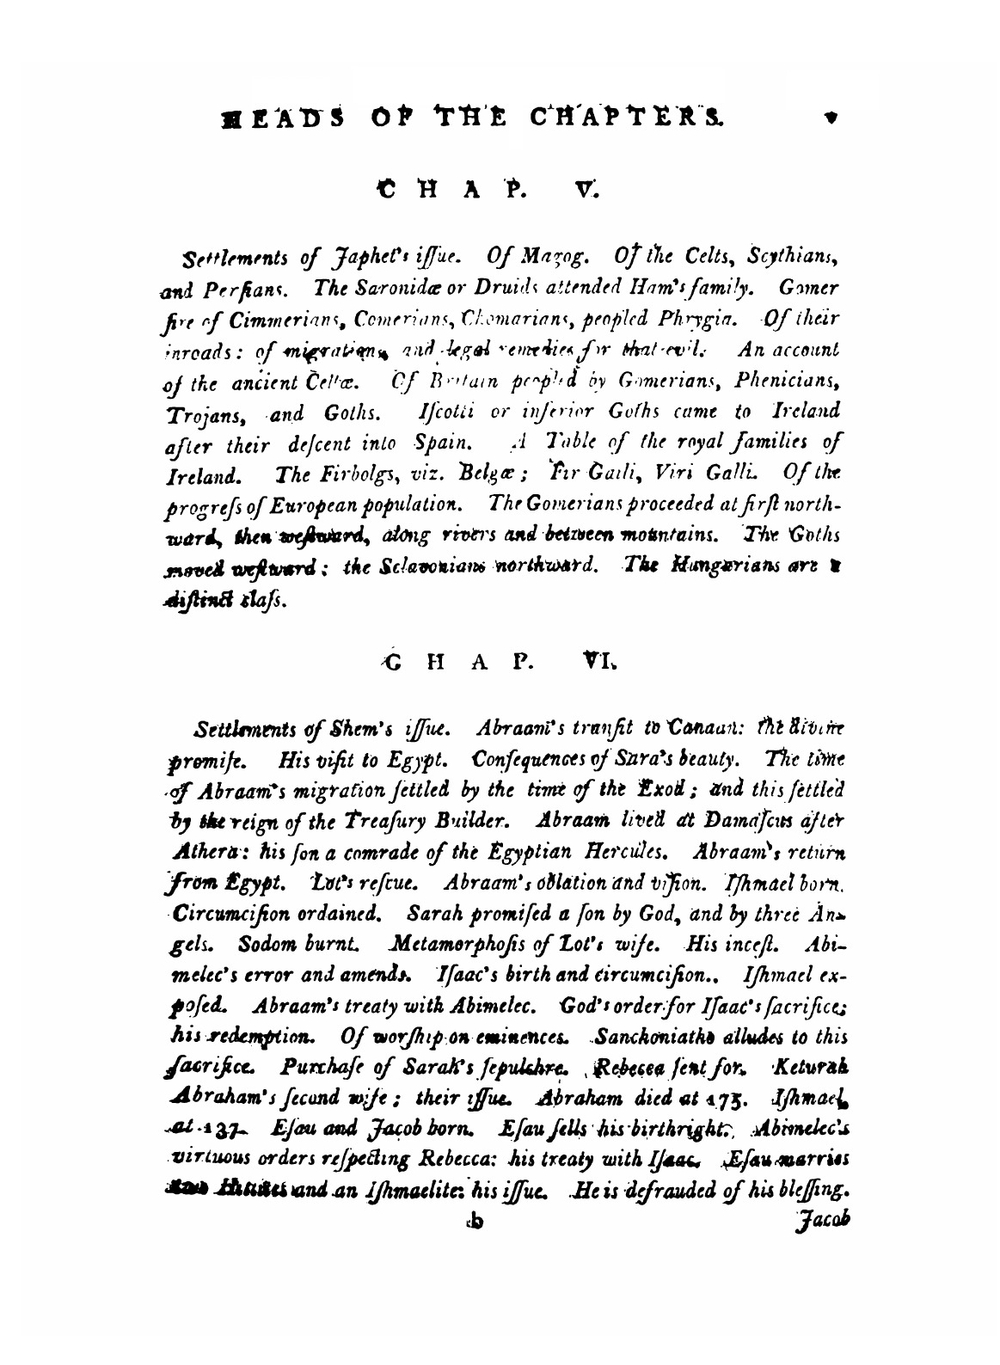 HEADS OF THE CHAPTERS. v
CHAP. V.
Settlements of Japhet's iſſue. Of Magog. Of the Celts, Scythians,
and Perſians. The Saronidæ or Druids attended Ham's family. Gomer
ſire of Cimmerians, Comerians, Chomarians, peopled Phrygia. Of their
inroads: of migrations, and legal remedies for that evil. An account
of the ancient Celtæ. Of Britain peopled by Gomerians, Phenicians,
Trojans, and Goths. Iſcotti or inferior Goths came to Ireland
after their deſcent into Spain. A Table of the royal families of
Ireland. The Firbolgs, viz. Belgæ; Fir Gaili, Viri Galli. Of the
progreſs of European population. The Gomerians proceeded at firſt north-
ward, then weſtward, along rivers and between mountains. The Goths
moved weſtward; the Sclavonians northward. The Hungarians are a
diſtinct claſs.
CHAP. VI.
Settlements of Shem's iſſue. Abraam's tranſit to Canaan: the divine
promiſe. His viſit to Egypt. Conſequences of Sara's beauty. The time
of Abraam's migration ſettled by the time of the Exod; and this ſettled
by the reign of the Treaſury Builder. Abraam lived at Damaſcus after
Athera: his ſon a comrade of the Egyptian Hercules. Abraam's return
from Egypt. Lot's reſcue. Abraam's oblation and viſion. Iſhmael born.
Circumciſion ordained. Sarah promiſed a ſon by God, and by three An-
gels. Sodom burnt. Metamorphoſis of Lot's wife. His inceſt. Abi-
melec's error and amends. Iſaac's birth and circumciſion. Iſhmael ex-
poſed. Abraam's treaty with Abimelec. God's order for Iſaac's ſacrifice;
his redemption. Of worſhip on eminences. Sanchoniatho alludes to this
ſacrifice. Purchaſe of Sarah's ſepulchre. Rebecca ſent for. Keturah
Abraham's ſecond wife; their iſſue. Abraham died at 175. Iſhmael
at 137. Eſau and Jacob born. Eſau ſells his birthright. Abimelec's
virtuous orders reſpecting Rebecca: his treaty with Iſaac. Eſau marries
two and an Iſhmaelite: his iſſue. He is defrauded of his bleſſing.
b Jacob